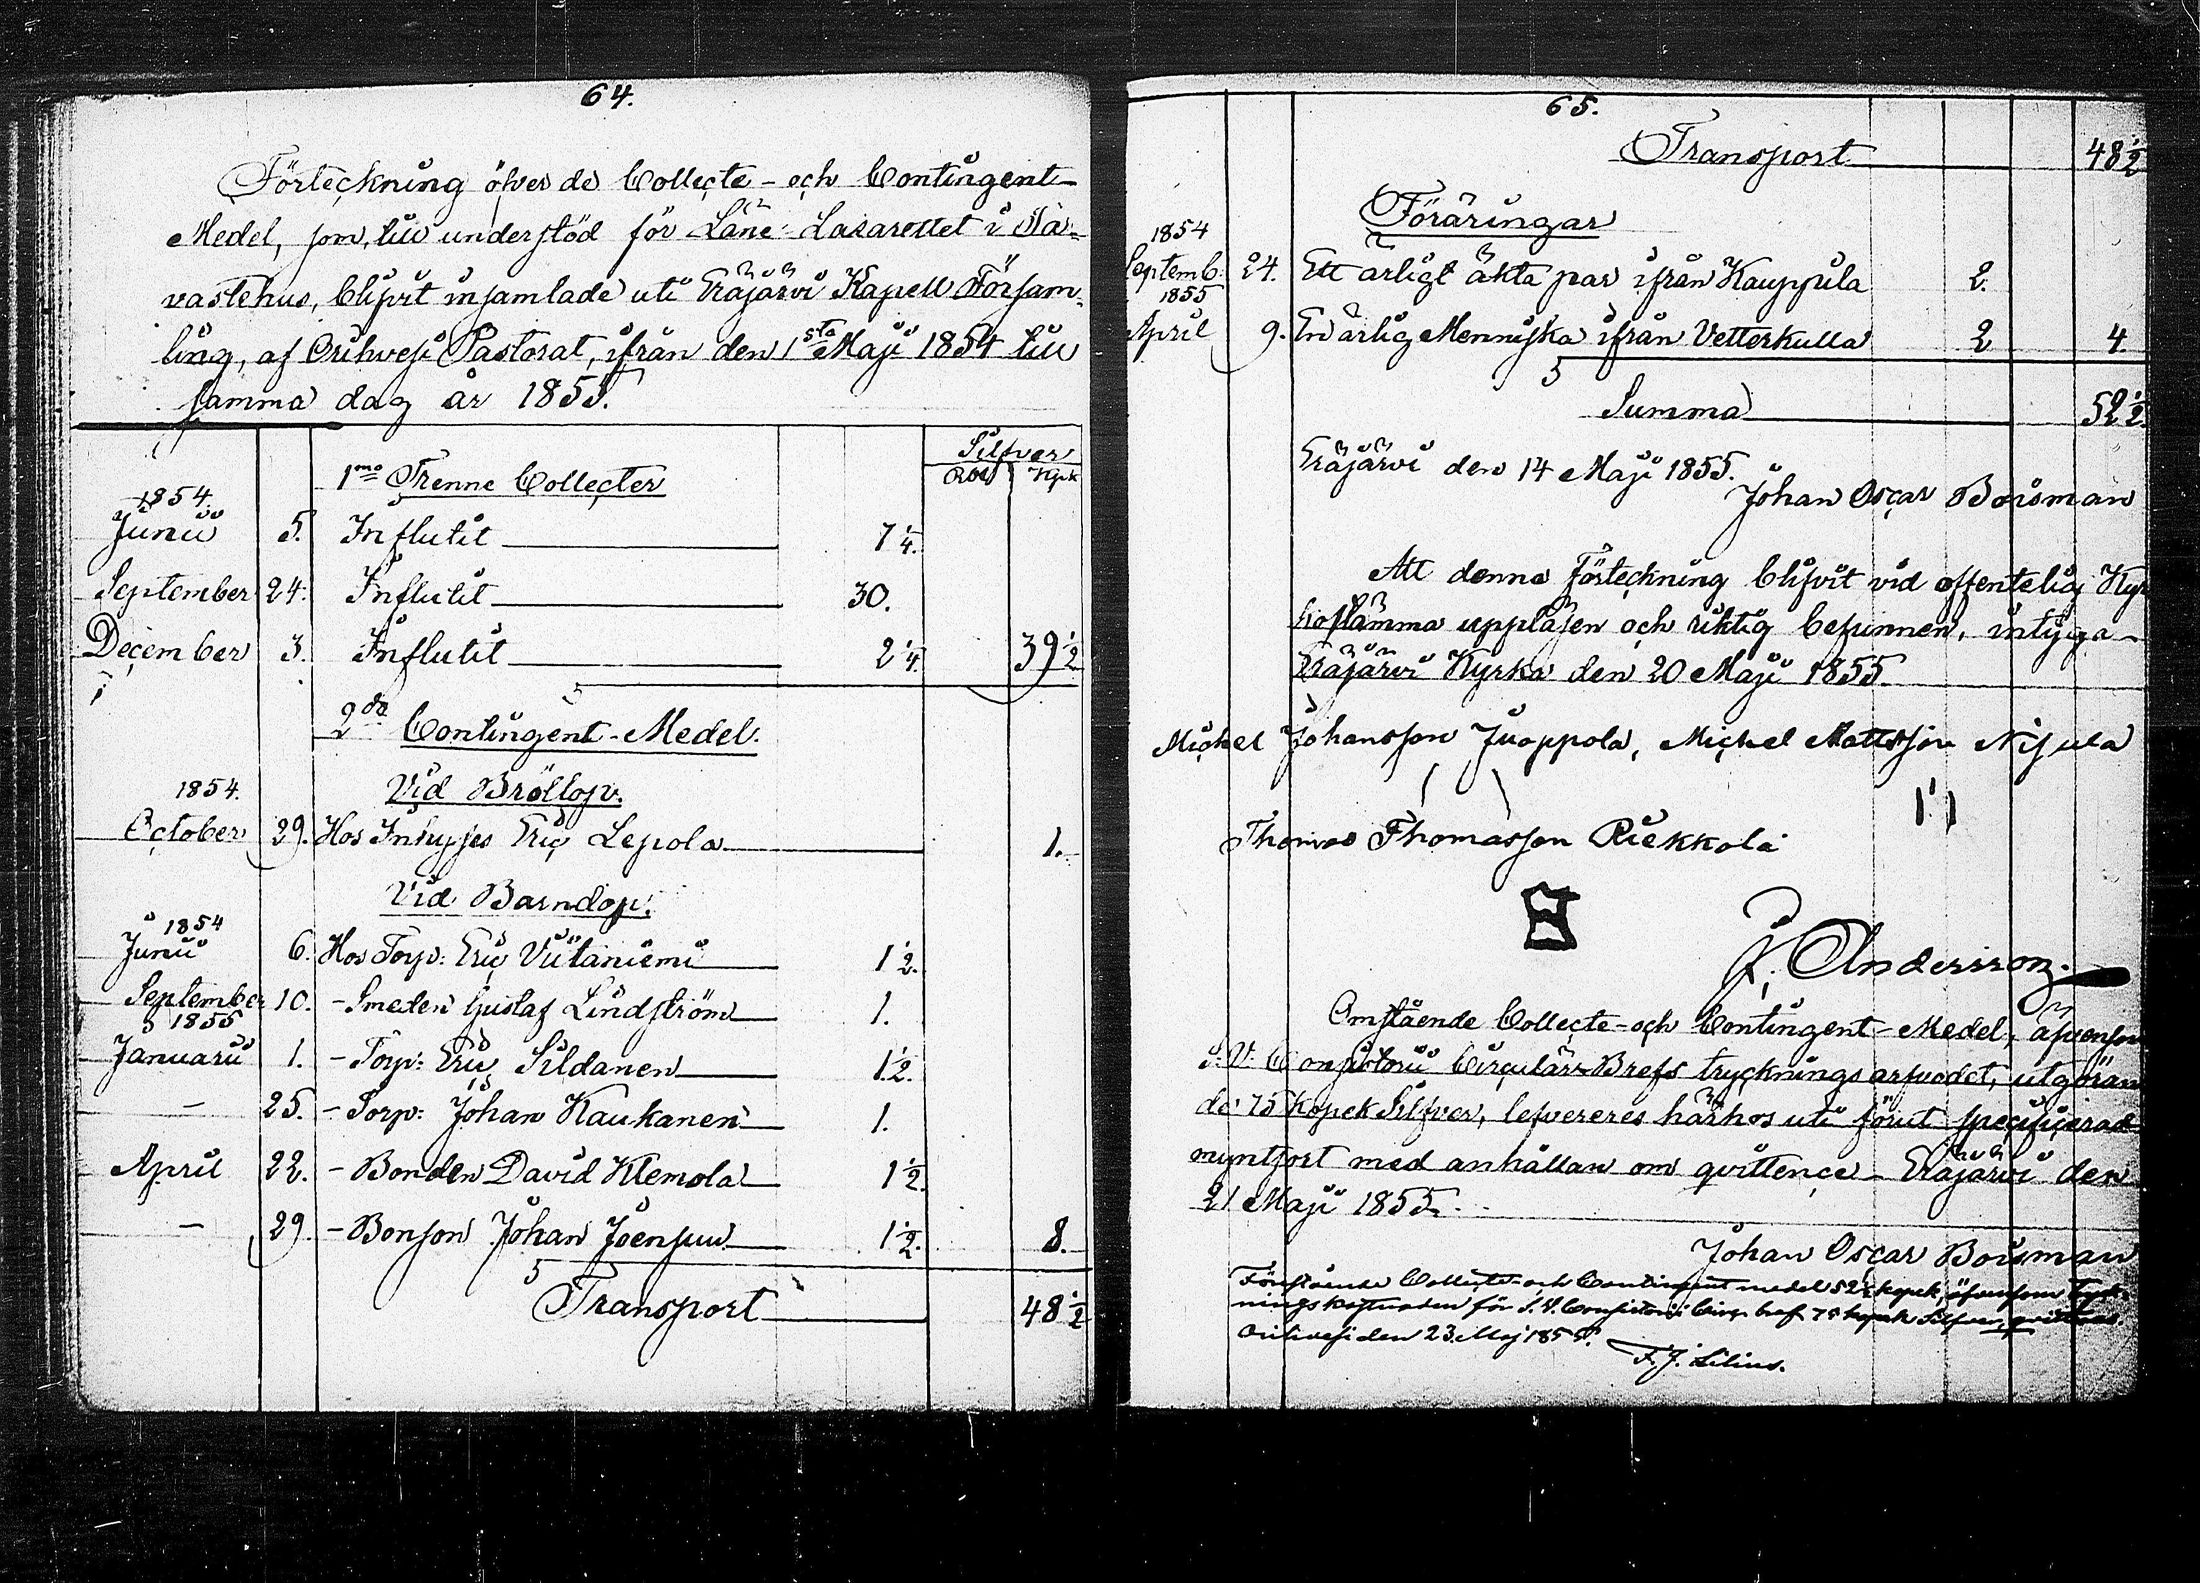 64.
Förteckning öfver de Collecte- och Contingent-
Medel, som, till understöd för Läne-Lasarettet i Ta-
vastehus, blifvit insamlade uti Eräjärvi Kapell Försam-
ling, af Orihvesi Pastorat, ifrån den 1sta Maji 1854 till
samma dag år 1855.
Silfver
1mo Trenne Collecter Rbl Kpk
1854.
Junii 5. Influtit 7 1/4.
September 24. Influtit 30.
December 3. Influtit 2 1/4. 39 1/2
2do Contingent-Medel.
1854. Vid Bröllop.
October 29. Hos Inhyses Eric Lepola 1.
Vid Barndop.
1854
Junii 6. Hos Torp: Eric Viitaniemi 1 1/2.
September 10. - Smeden Gustaf Lindström 1.
1855
Januarii 1. - Torp: Eric Sildanen 1 1/2.
- 25. - Torp: Johan Kaukanen 1.
April 22. - Bonden David Klemola 1 1/2.
- 29. - Bonson Johan Joensuu 1 1/2. 8.
Transport 48 1/2
65.
Transport 48 1/2
Föräringar
1854
Septemb: 24. Ett ärligt äkta par ifrån Kauppila 2.
1855
April 9. En ärlig Menniska ifrån Vetterkulla 2 4.
Summa 52 1/2.
Eräjärvi den 14 Maji 1855.
Johan Oscar Boisman
Att denna Förteckning blifvit vid offentelig Kyr
kostämma uppläsen och riktig befunnen, intyga-
Eräjärvi Kyrka den 20 Maji 1855.
Michel Johansson Juoppola, Michel Mattsson Nijula
Thomas Thomasson Riekkola
J. Andersson.
Omstående Collecte- och Contingent-Medel, äfvensom
S: V: Consistorii Circulär-Brefs tryckningsarfvodet, utgöran
de 75 kopek Silfver, lefvereres härhos uti förut specificerad
myntsort med anhållan om qvittence- Eräjärvi den
21 Maji 1855.
Johan Oscar Boisman
Förestående Collecte- och Contingent medel 52 1/2 kopek, äfvensom Tryck-
ningskostnaden för S. V. Consistorii Circ. bref 75 kopek Silfver, qvitteras
Orihvesi den 23. Maj 1855.
F. J. Lilius.